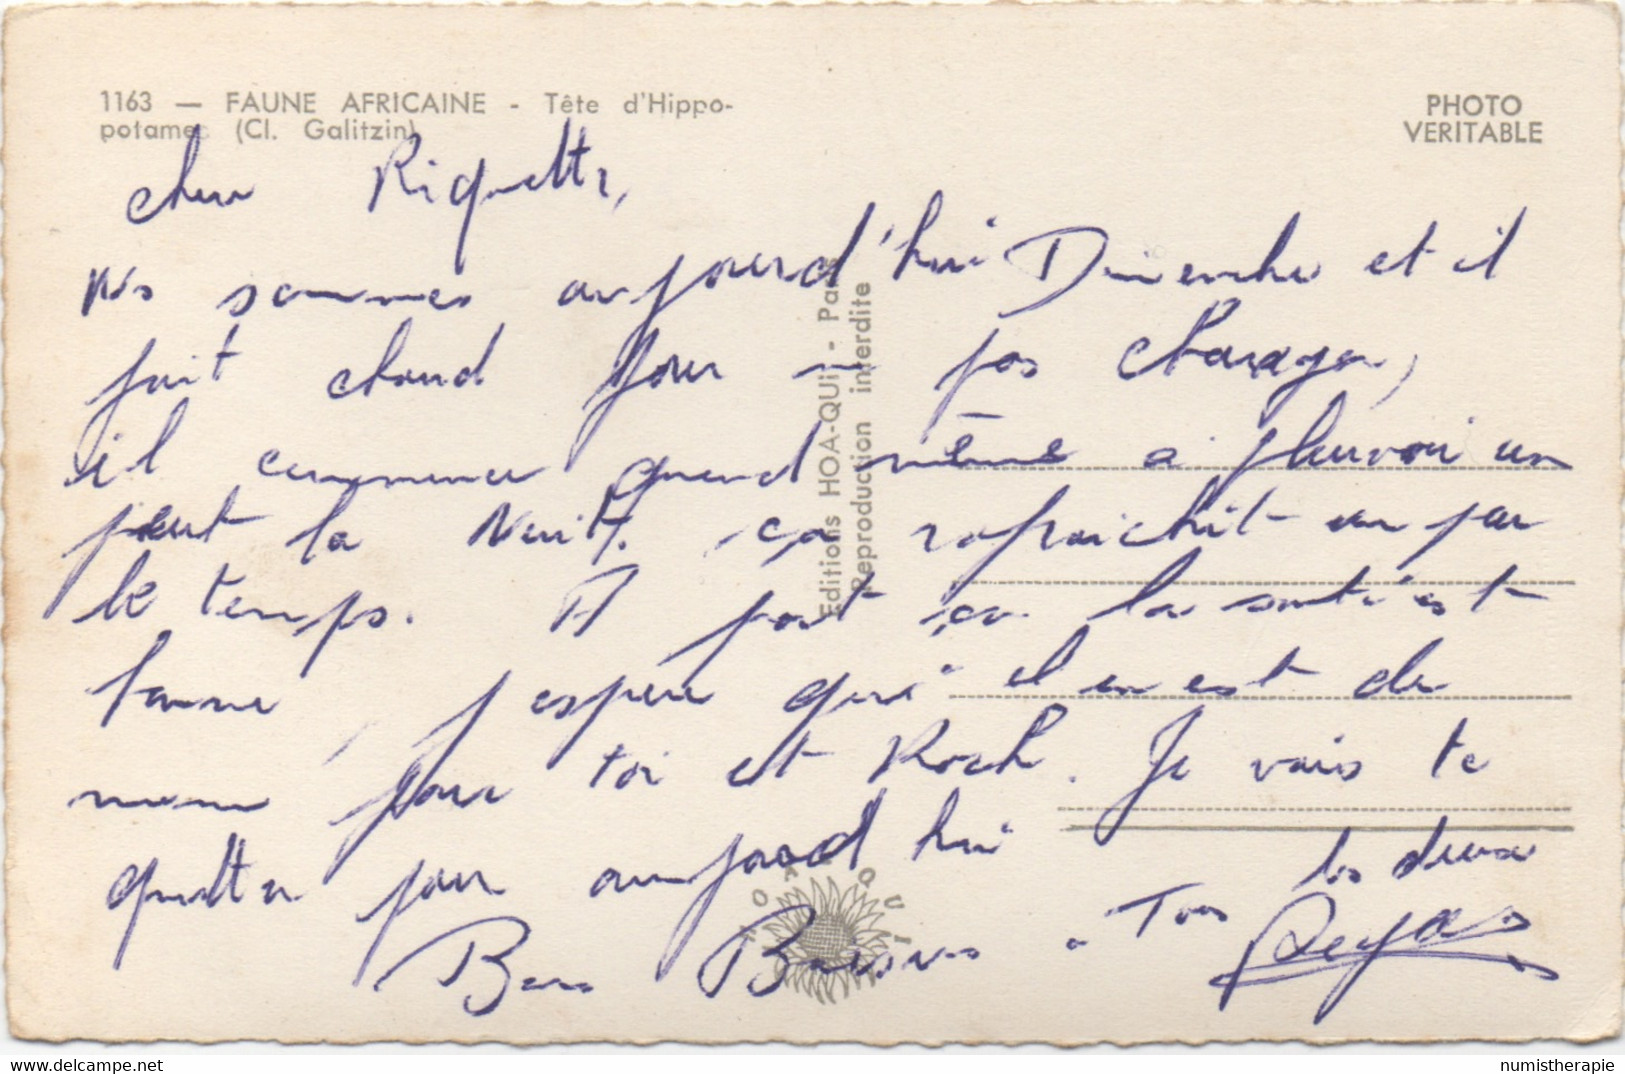 1163 — FAUNE AFRICAINE - Tête d'Hippo-
potames (Cl. Galitzin)
PHOTO
VERITABLE
cher Riquette,
Ns sommes aujourd'hui Dimenche et il
fait chaud pour ne pas changer,
il commence quand même a pleuvoir un
peut la Nuit. ça rafraichit un peu
le temps. A part ça la santé est
bonne, j'espere qu'il en est de
meme pour toi et Roch. Je vais te
quitter pour aujourd'hui
Bons Baisers a Tous les deux
Editions HOA-QUI - Paris
Reproduction interdite
HOA QUI
delcampe.net
numistherapie